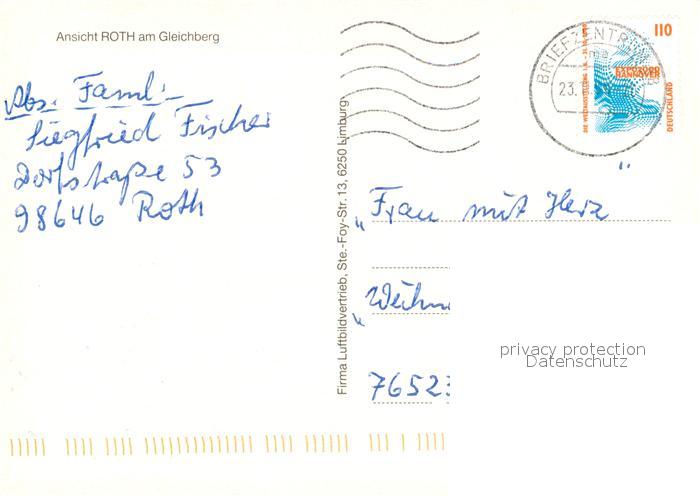 Ansicht ROTH am Gleichberg
Abs. Famil.
Siegfried Fischer
Dorfstraße 53
98646 Roth
Firma Luftbildvertrieb, Ste.-Foy-Str. 13, 6250 Limburg
BRIEFZENTRUM
23.
110
DIE WELTAUSSTELLUNG
EXPO2000
HANNOVER
DEUTSCHLAND
„Frau mit Herz"
„Weihn
76523
privacy protection
Datenschutz